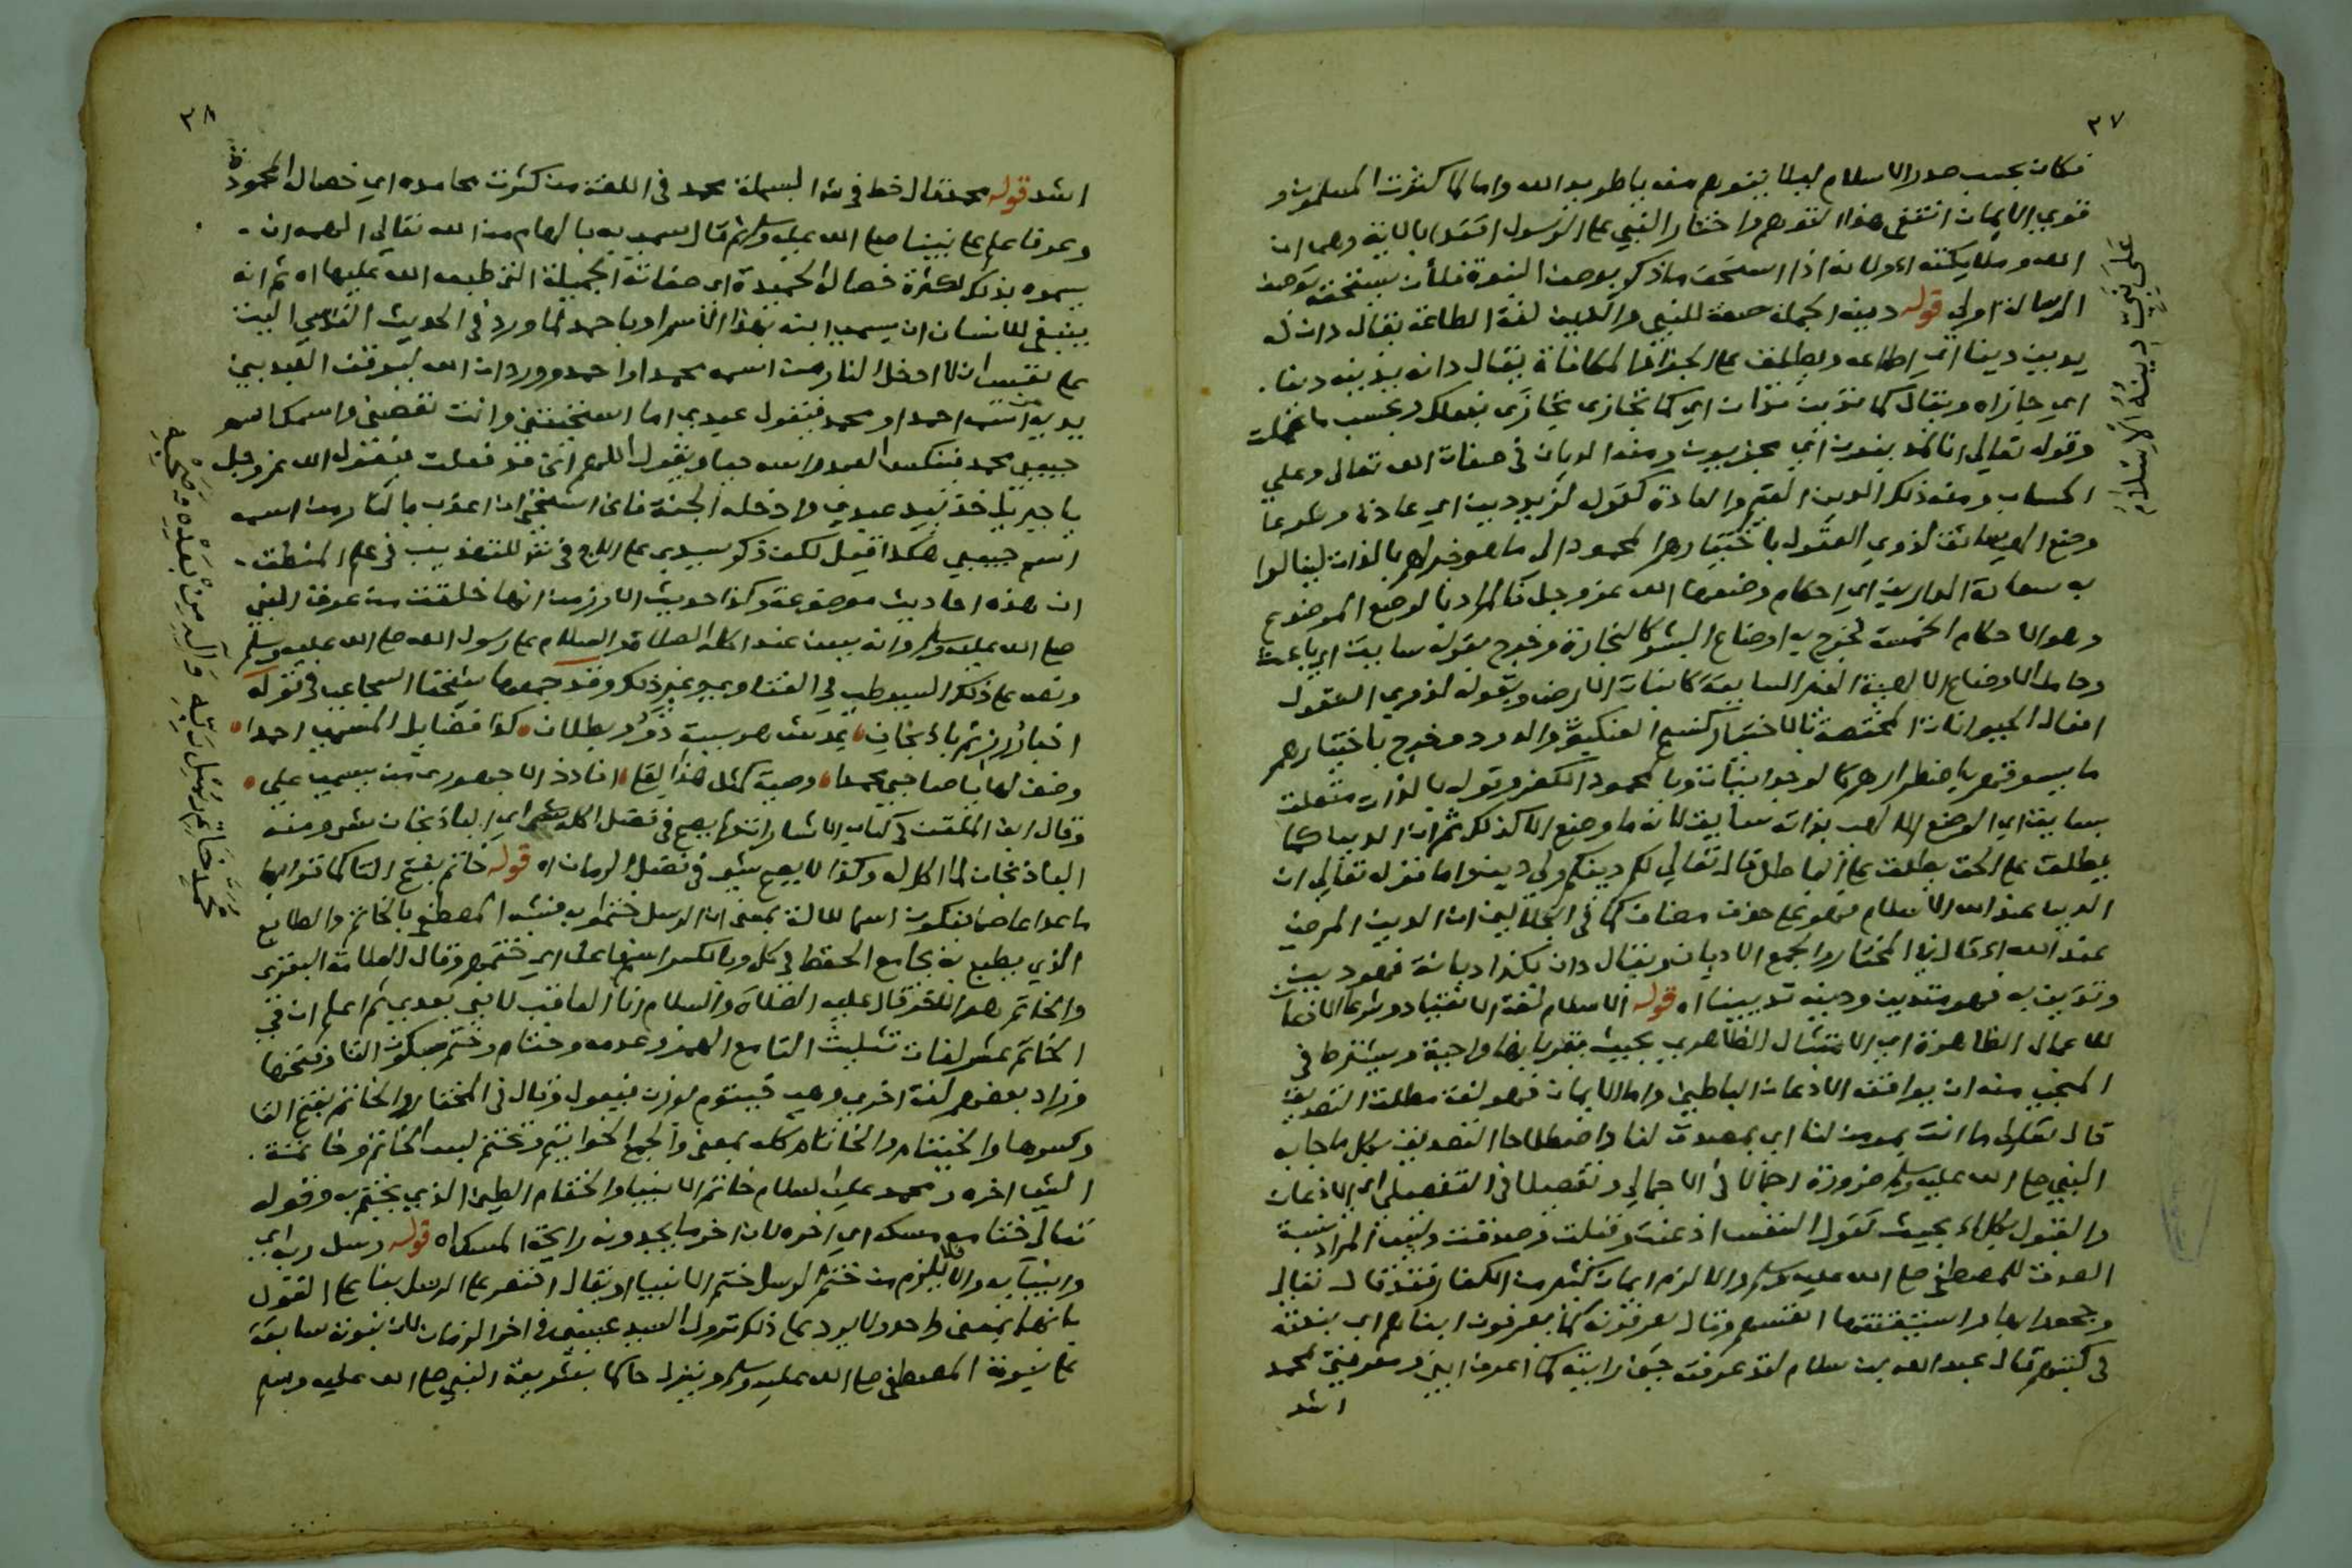 ٣٧
فكان يجب صدر الاسلام ليلا يتوهم منه باطر يد الله واما لما كثرت المسلمون و
قوي الايمان انتفى هذا التوهم واختار النبي على الرسول اقتداء بالاية وهي ان
الله وملايكته اه ولانه اذا استحق ما ذكر بوصف النبوة فلأن يستحقه بوصف
الرسالة اولى قوله دينه الجملة صفة للنبي والدين لغة الطاعة يقال دان له
يدين دينا اي اطاعه ويطلق على الجزاء والمكافاة يقال دانه يدينه دينا
اي جازاه ويقال كما تدين تدان اي كما تجازي تجازى بفعلك وبحسب ما عملت
وقوله تعالى انا لمدينون اي مجزيون ومنه الديان في صفات الله تعالى وعلى
الحساب ومنه ذلك الدين القيم والعادة كقوله لزيد دين اي عادة وشرعا
وضع الهي سائق لذوي العقول باختيارهم المحمود الى ما هو خير لهم بالذات لينالوا
به سعادة الدارين اي احكام وضعها الله عز وجل فالمراد بالوضع الموضوع
وهو الاحكام الخمسة فخرج به اوضاع البشر كالتجارة وخرج بقوله سايق اي باعث
وحامل الاوضاع الالهية الغير السايقة كانبات الارض وبقوله لذوي العقول
افعال الحيوانات المختصة بالاختيار كنسج العنكبوت والدود وخرج باختيارهم
ما يسوقهم باضطرارهم كالوجدانيات وبالمحمود الكفر وقوله بالذات متعلق
بسايق اي الوضع الالهي بذاته سايق لانه ما وضع الا كذلك ثم ان الدين كما
يطلق على الحق يطلق على الباطل قال تعالى لكم دينكم ولي دين واما قوله تعالى ان
الدين عند الله الاسلام فهو على حذف مضاف كما في الجلالين ان الدين المرضي
عند الله اه قال في المختار والجمع الاديان ويقال دان بكذا ديانة فهو دين
وتدين به فهو متدين ودينه تديينا اه قوله الاسلام لغة الانقياد وشرعا الاذعان
للاعمال الظاهرة اي الامتثال الظاهري بحيث يقر بانها واجبة ويشترط في
المنجي منه ان يوافقه الاذعان الباطني واما الايمان فهو لغة مطلق التصديق
قال تعالى وما انت بمومن لنا اي بمصدق لنا واصطلاحا التصديق بكل ما جا به
النبي صلى الله عليه وسلم ضرورة اجمالا في الاجمالي وتفصيلا في التفصيلي اي الاذعان
والقبول بكل اه بحيث تقول النفس اذعنت وقبلت وصدقت وليس المراد نسبة
الصدق للمصطفى صلى الله عليه وسلم والا لزم ايمان كثير من الكفار فقد قال تعالى
وجحدوا بها واستيقنتها انفسهم وقال يعرفونه كما يعرفون ابناءهم اي بنعته
في كتبهم قال عبد الله بن سلام لقد عرفته حين رايته كما اعرف ابني ومعرفتي لمحمد
اشد
على نبي دينه الاسلام
٣٨
اشد قوله محمد قال خط في شر البسملة محمد في اللغة من كثرت محامده اي خصاله المحمودة
وعرفا علم على نبينا صلى الله عليه وسلم ثم قال سمي به بالهام من الله تعالى الهمه ان
يسموه بذلك لكثرة خصاله الحميدة اي صفاته الجميلة التي طبعه الله عليها اه ثم انه
ينبغي للانسان ان يسمي ابنه بهذا الاسم او باحمد لما ورد في الحديث القدسي اليت
على نفسي ان لا ادخل النار من اسمه محمد او احمد وورد ان الله ليوقف العبد بين
يديه من اسمه احمد او محمد فيقول عبدي اما استحييتني وانت تعصيني واسمك اسم
حبيبي محمد فينكس العبد راسه حيا ويقول اللهم اني قد فعلت فيقول الله عز وجل
يا جبريل خذ بيد عبدي وادخله الجنة فاني استحي ان اعذب بالنار من اسمه
اسم حبيبي هكذا قيل لكن ذكر سيدي علي الاج في شر التهذيب في علم المنطق
ان هذه احاديث موضوعة وكذا حديث الارز من انها خلقت من عرق النبي
صلى الله عليه وسلم وانه يسن عند اكله الصلاة والسلام على رسول الله صلى الله عليه وسلم
ونص على ذلك السيوطي في الفتاوي وغير ذلك وقد جمعها شيخنا السجاعي في قوله
اخبار رز ثم باذنجان يحدث هريسة ذو بطلان كذا فضايل المسمى احمدا
وضف لها يا صاحبي محمدا وصية كمثل هذا لعلي اذا ذا جمهوري من يسمى علي
وقال ابن الملقن في كتاب الاشارات لم يصح في فضل اكله اي الباذنجان شي ومنه
الباذنجان لما اكل له وكذا لا يصح شي في فضل الرمان اه قوله خاتم بفتح التا كما قرا بها
ما عدا عاصم فيكون اسما للالة بمعنى ان الرسل ختموا به فشبه المصطفى بالخاتم والطابع
الذي يطبع به بجامع الحفظ في كل وبالكسر اسم فاعل اي ختمهم وقال العلامة البغوي
والخاتم هو الاخر قال عليه الصلاة والسلام انا العاقب لا نبي بعدي ثم اعلم ان في
الخاتم عشر لغات تثليث التا مع الهمز وعدمه وختام وختم بسكون التا وفتحها
وزاد بعضهم لغة اخرى وهي خيتوم بوزن فيعول وقال في المختار والخاتم بفتح التا
وكسرها والخيتام والخاتام كله بمعنى والجمع الخواتيم وتختم لبس الخاتم وخاتمة
الشي اخره ومحمد عليه السلام خاتم الانبيا والختام الطين الذي يختم به وقوله
تعالى ختامه مسك اي اخره لان اخر ما يجدونه رايحة المسك اه قوله رسل ربه اي
وانبيائه والا فلا يلزم من ختم الرسل ختم الانبيا او يقال اقتصر على الرسل بنا على القول
بانهما بمعنى واحد ولا يرد على ذلك نزول السيد عيسى في اخر الزمان لان نبوته سابقة
على نبوة المصطفى صلى الله عليه وسلم وينزل حاكما بشريعة النبي صلى الله عليه وسلم
محمد خاتم رسل ربه وآله من بعده وحزبه